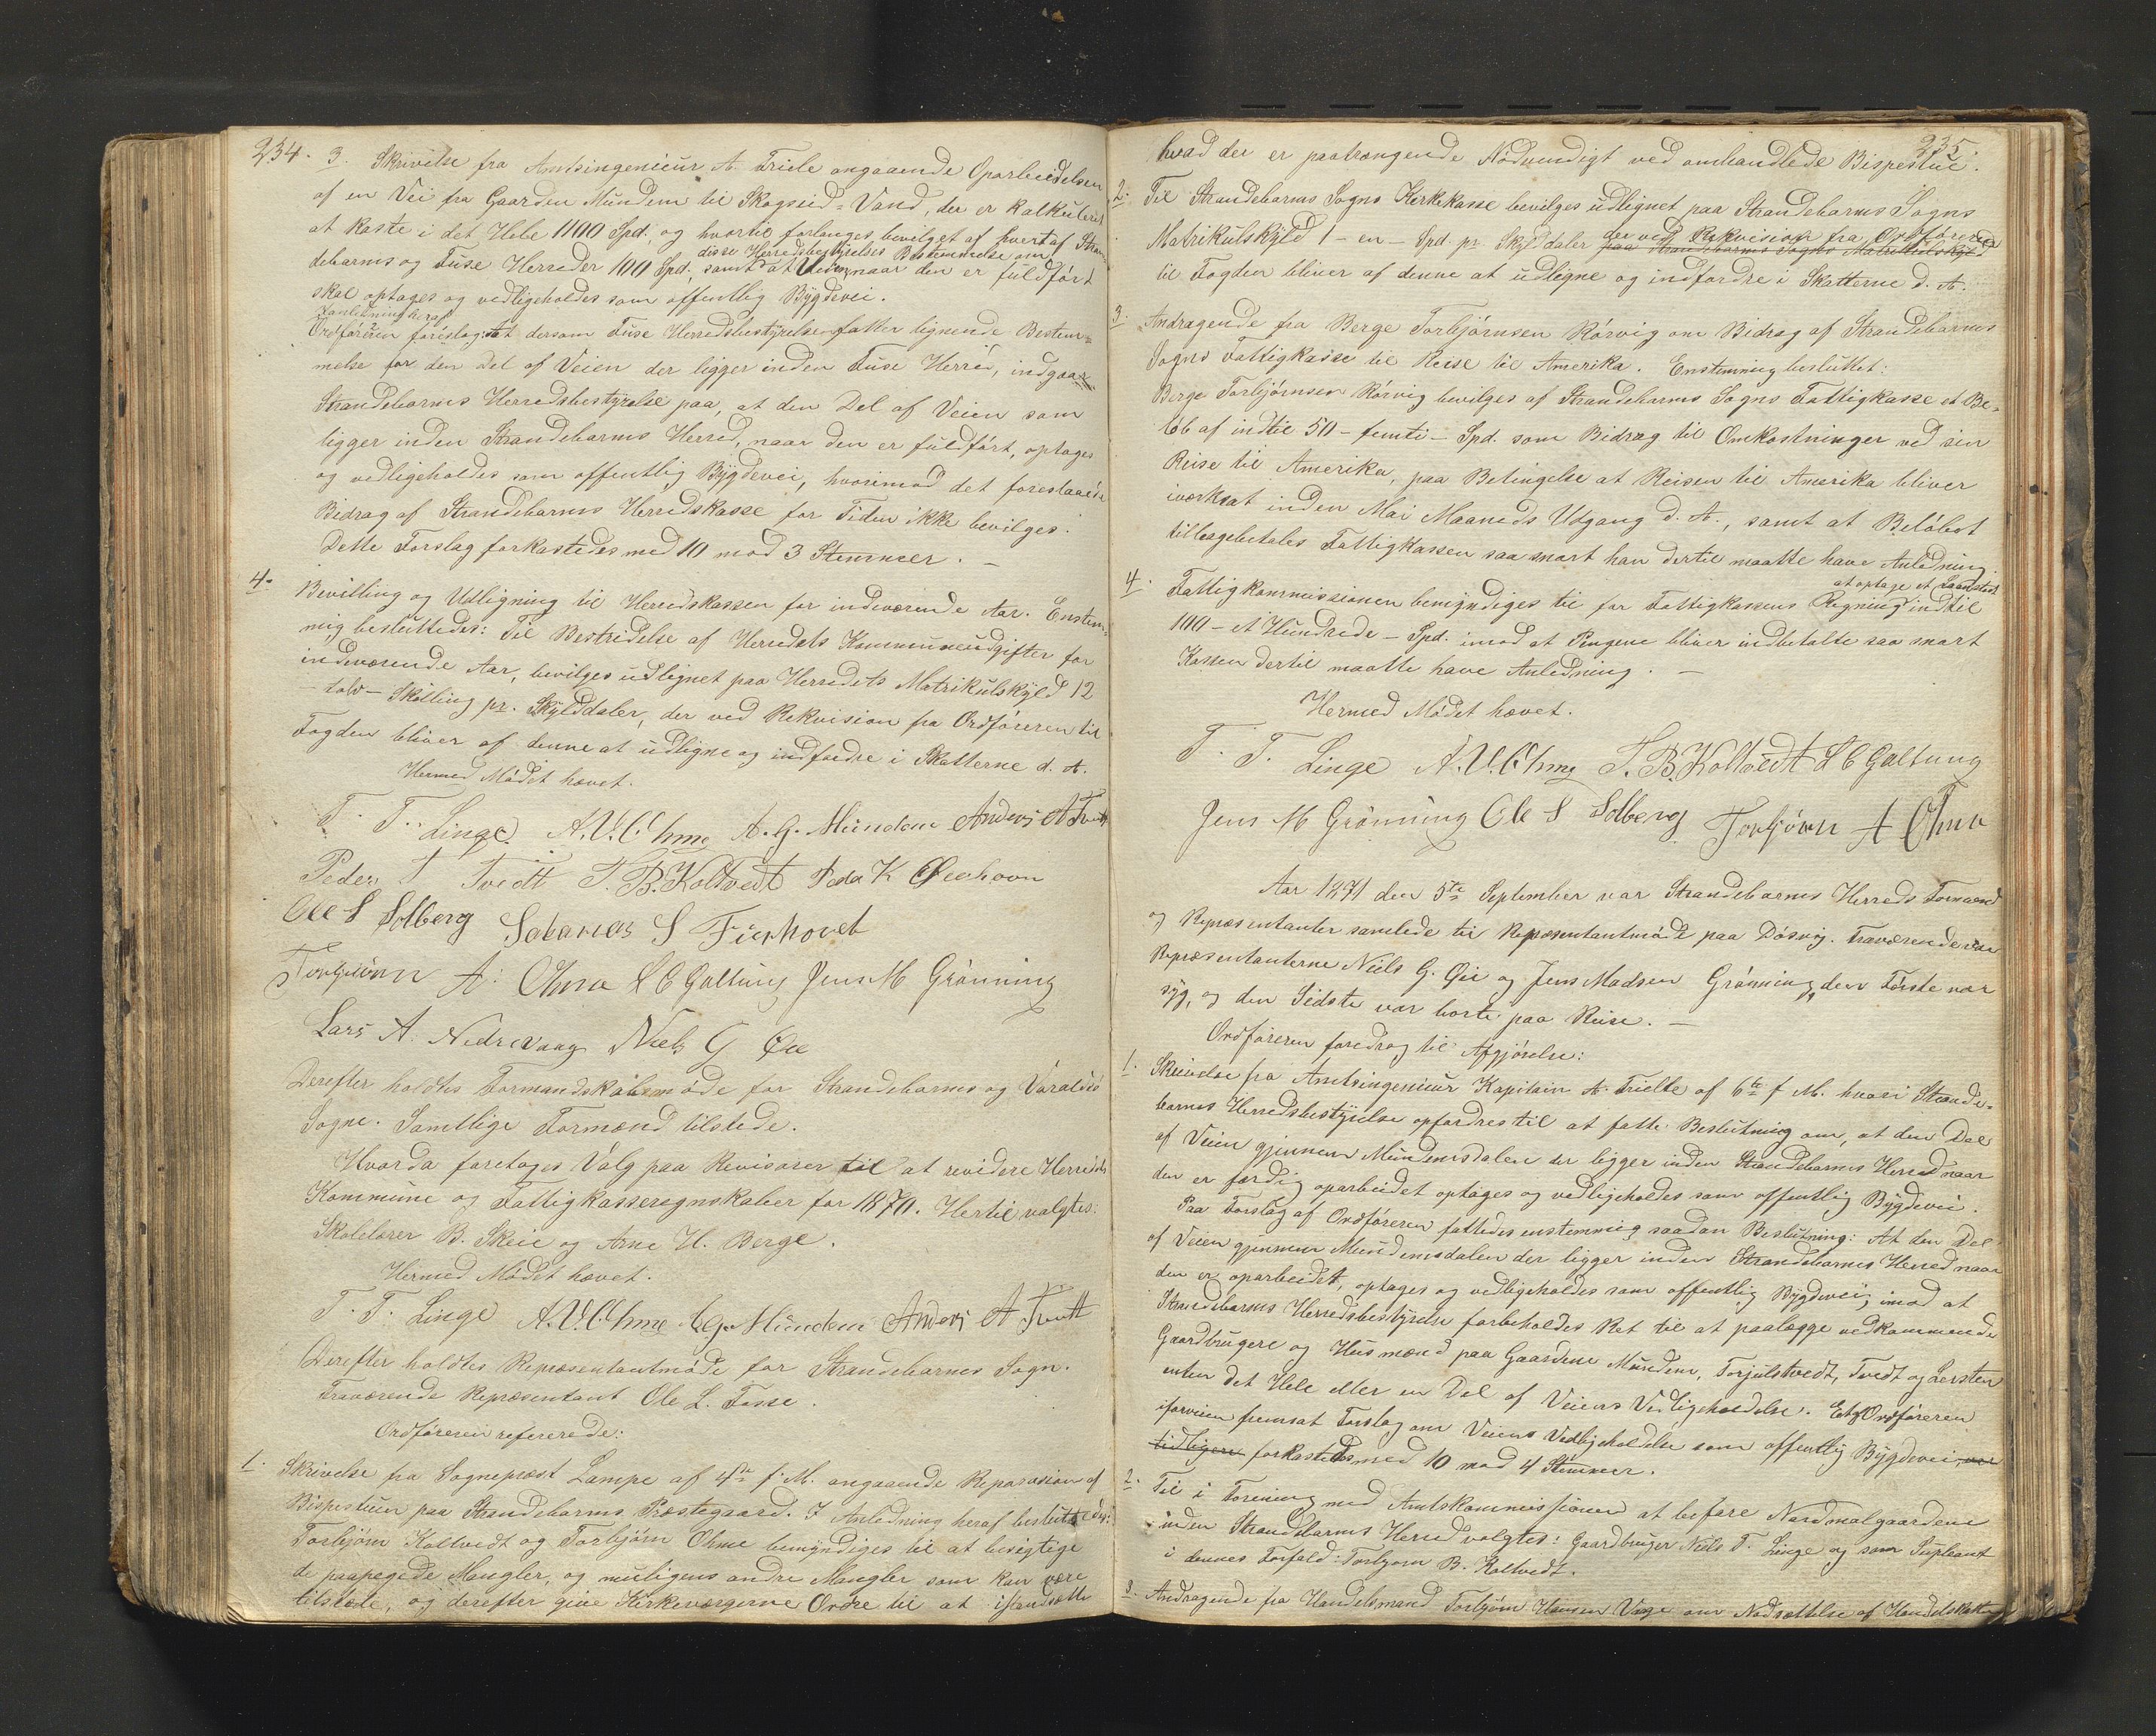 234.
3. Skrivelse fra Amtsingeniéur A. Triele angaaende Oparbeidelsen
af en Vei fra Gaarden Mundem til Skogseid-Vand, der er kalkuleret
at koste i det Hele 1100 Spd. og hvortil forlanges bevilget af hvert af Stran-
debarms og Fuse Herreder 100 Spd. samt disse Herredsbestyrelses Bestemmelse om
at Veien, naar den er fuldført
skal optages og vedligeholdes som offentlig Bygdevei.
I Anledning heraf
Ordføreren foreslog: At dersom Fuse Herredsbestyrelse fatter lignende Bestem-
melse for den Del af Veien der ligger inden Fuse Herred, indgaar
Strandebarms Herredsbestyrelse paa, at den Del af Veien som
ligger inden Strandebarms Herred, naar den er fuldført, optages
og vedligeholdes som offentlig Bygdevei, hvorimod det foreslaaede
Bidrag af Strandebarms Herredskasse for Tiden ikke bevilges.
Dette Forslag forkastedes med 10 mod 3 Stemmer. –
4. Bevilling og Udligning til Herredskassen for indeværende Aar. Enstem-
mig besluttedes: Til Bestridelse af Herredets Kommuneudgifter for
indeværende Aar, bevilges udlignet paa Herredets Matrikulskyld 12
– tolv – Skilling pr. Skylddaler, der ved Rekvision fra Ordføreren til
Fogden bliver af denne at udligne og indfordre i Skatterne d. A.
Hermed Mødet hævet.
T. T. Linge A. V. Ohme A. G. Mundem Anders A Tvett
Peder T Tvedt T. B. Koltvedt Peder K Øvrhovn
Ole S Solberg Sakarias S Fierhovet
Torbjörn A: Ohma L C Galtung Jens M Grönning
Lars A. Nedrevaag Niels G Øie
Derefter holdtes Formandskabsmøde for Strandebarms og Varaldsø
Sogne. Samtlige Formænd tilstede.
Hvorda foretages Valg paa Revisorer til at revidere Herredets
Kommune og Fattigkasseregnskaber for 1870. Hertil valgtes:
Skolelærer B. Skeie og Arne H. Berge.
Hermed Mødet hævet.
T. T. Linge A. V. Ohme A. G. Mundem Anders A Tvett
Derefter holdtes Repræsentantmøde for Strandebarms Sogn.
Fraværende Repræsentant Ole L. Fosse.
Ordføreren refererede:
1. Skrivelse fra Sognepræst Lampe af 4de f. M. angaaende Reparasion af
Bispestuen paa Strandebarms Præstegaard. I Anledning heraf besluttedes:
Torbjørn Koltvedt og Torbjørn Ohme bemyndiges til at besigtige
de paapegede Mangler, og muligens andre Mangler som kan være
tilstede, og derefter give Kirkeværgerne Ordre til at istandsætte
235.
hvad der er paatrængende Nødvendigt ved omhandlede Bispestue.
2. Til Strandebarms Sogns Kirkekasse bevilges udlignet paa Strandebarms Sogns
Matrikulskyld 1 – en – Spd. pr. Skylddaler der ved Rekvision fra Ordføreren
paa Strandebarms Sogns Matrikulskyld
til Fogden bliver af denne at udligne og indfordre i Skatterne d. A.
3. Andragende fra Berge Torbjørnsen Rørvig om Bidrag af Strandebarms
Sogns Fattigkasse til Reise til Amerika. Enstemmig besluttet:
Berge Torbjørnsen Rørvig bevilges af Strandebarms Sogns Fattigkasse et Be-
løb af indtil 50 – femti – Spd. som Bidrag til Omkostninger ved sin
Reise til Amerika, paa Betingelse at Reisen til Amerika bliver
iværksat inden Mai Maaneds Udgang d. A., samt at Beløbet
tilbagebetales Fattigkassen saa snart han dertil maatte have Anledning.
4. Fattigkommissionen bemyndiges til for Fattigkassens Regning at optage et Laan stort
indtil
100 – et Hundrede – Spd. imod at Pengene bliver indbetalte saa snart
Kassen dertil maatte have Anledning. –
Hermed Mødet hævet.
T. T. Linge A. V. Ohme T. B. Koltvedt L C Galtung
Jens M Grönning Ole S Solberg Torbjörn A Ohma
Aar 1871 den 5te September var Strandebarms Herreds Formænd
og Repræsentanter samlede til Repræsentantmøde paa Døsvig. Fraværende var
Repræsentanterne Niels G. Øie og Jens Madsen Grønning, den Første var
syg, og den Sidste var borte paa Reise. –
Ordføreren foredrog til Afgjørelse:
1. Skrivelse fra Amtsingeniéur Kapitain A. Trielle af 6te f M. hvori Strande-
barms Herredsbestyrelse opfordres til at fatte Beslutning om, at den Del
af Veien gjennem Mundemsdalen der ligger inden Strandebarms Herred naar
den er færdig oparbeidet optages og vedligeholdes som offentlig Bygdevei.
Paa Forslag af Ordføreren fattedes enstemmig saadan Beslutning: At den Del
af Veien gjennem Mundemsdalen der ligger inden Strandebarms Herred naar
den er oparbeidet, optages og vedligeholdes som offentlig Bygdevei, imod at
Strandebarms Herredsbestyrelse forbeholdes Ret til at paalægge vedkommende
Gaardbrugere og Husmænd paa Gaardene Mundem, Torjulstvedt, Tvedt og Lersten
enten det Hele eller en Del af Veiens Vedligeholdelse. Et af Ordføreren
iforveien fremsat Forslag om Veiens Vedligeholdelse som offentlig Bygdevei, var
tidligere forkastedes med 10 mod 4 Stemmer.
2. Til i Forening med Amtskommissionen at befare Nordmalgaardene
inden Strandebarms Herred valgtes: Gaardbruger Niels T. Linge og som Supleant
i dennes Forfald: Torbjørn B. Koltvedt.
3. Andragende fra Handelsmand Torbjørn Hansen Vage om Nedsættelse af Handelskatten